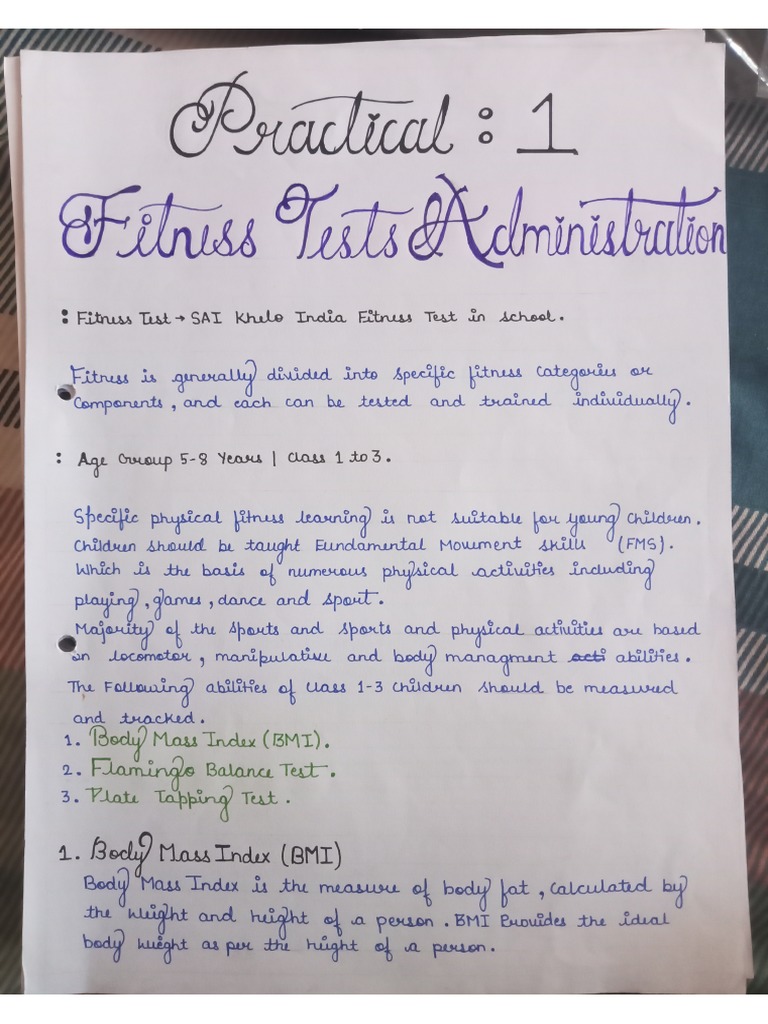 Practical : 1
Fitness Tests & Administration
: Fitness Test → SAI Khelo India Fitness Test in school.
Fitness is generally divided into specific fitness categories or
components, and each can be tested and trained individually.
: Age Group 5-8 Years | Class 1 to 3.
Specific physical fitness learning is not suitable for young children.
Children should be taught Fundamental Movement skills (FMS).
Which is the basis of numerous physical activities including
playing, games, dance and sport.
Majority of the sports and sports and physical activities are based
in locomotor, manipulative and body managment acti abilities.
The Following abilities of class 1-3 children should be measured
and tracked.
1. Body Mass Index (BMI).
2. Flamingo Balance Test.
3. Plate Tapping Test.
1. Body Mass Index (BMI)
Body Mass Index is the measure of body fat, calculated by
the weight and height of a person. BMI Provides the ideal
body weight as per the height of a person.